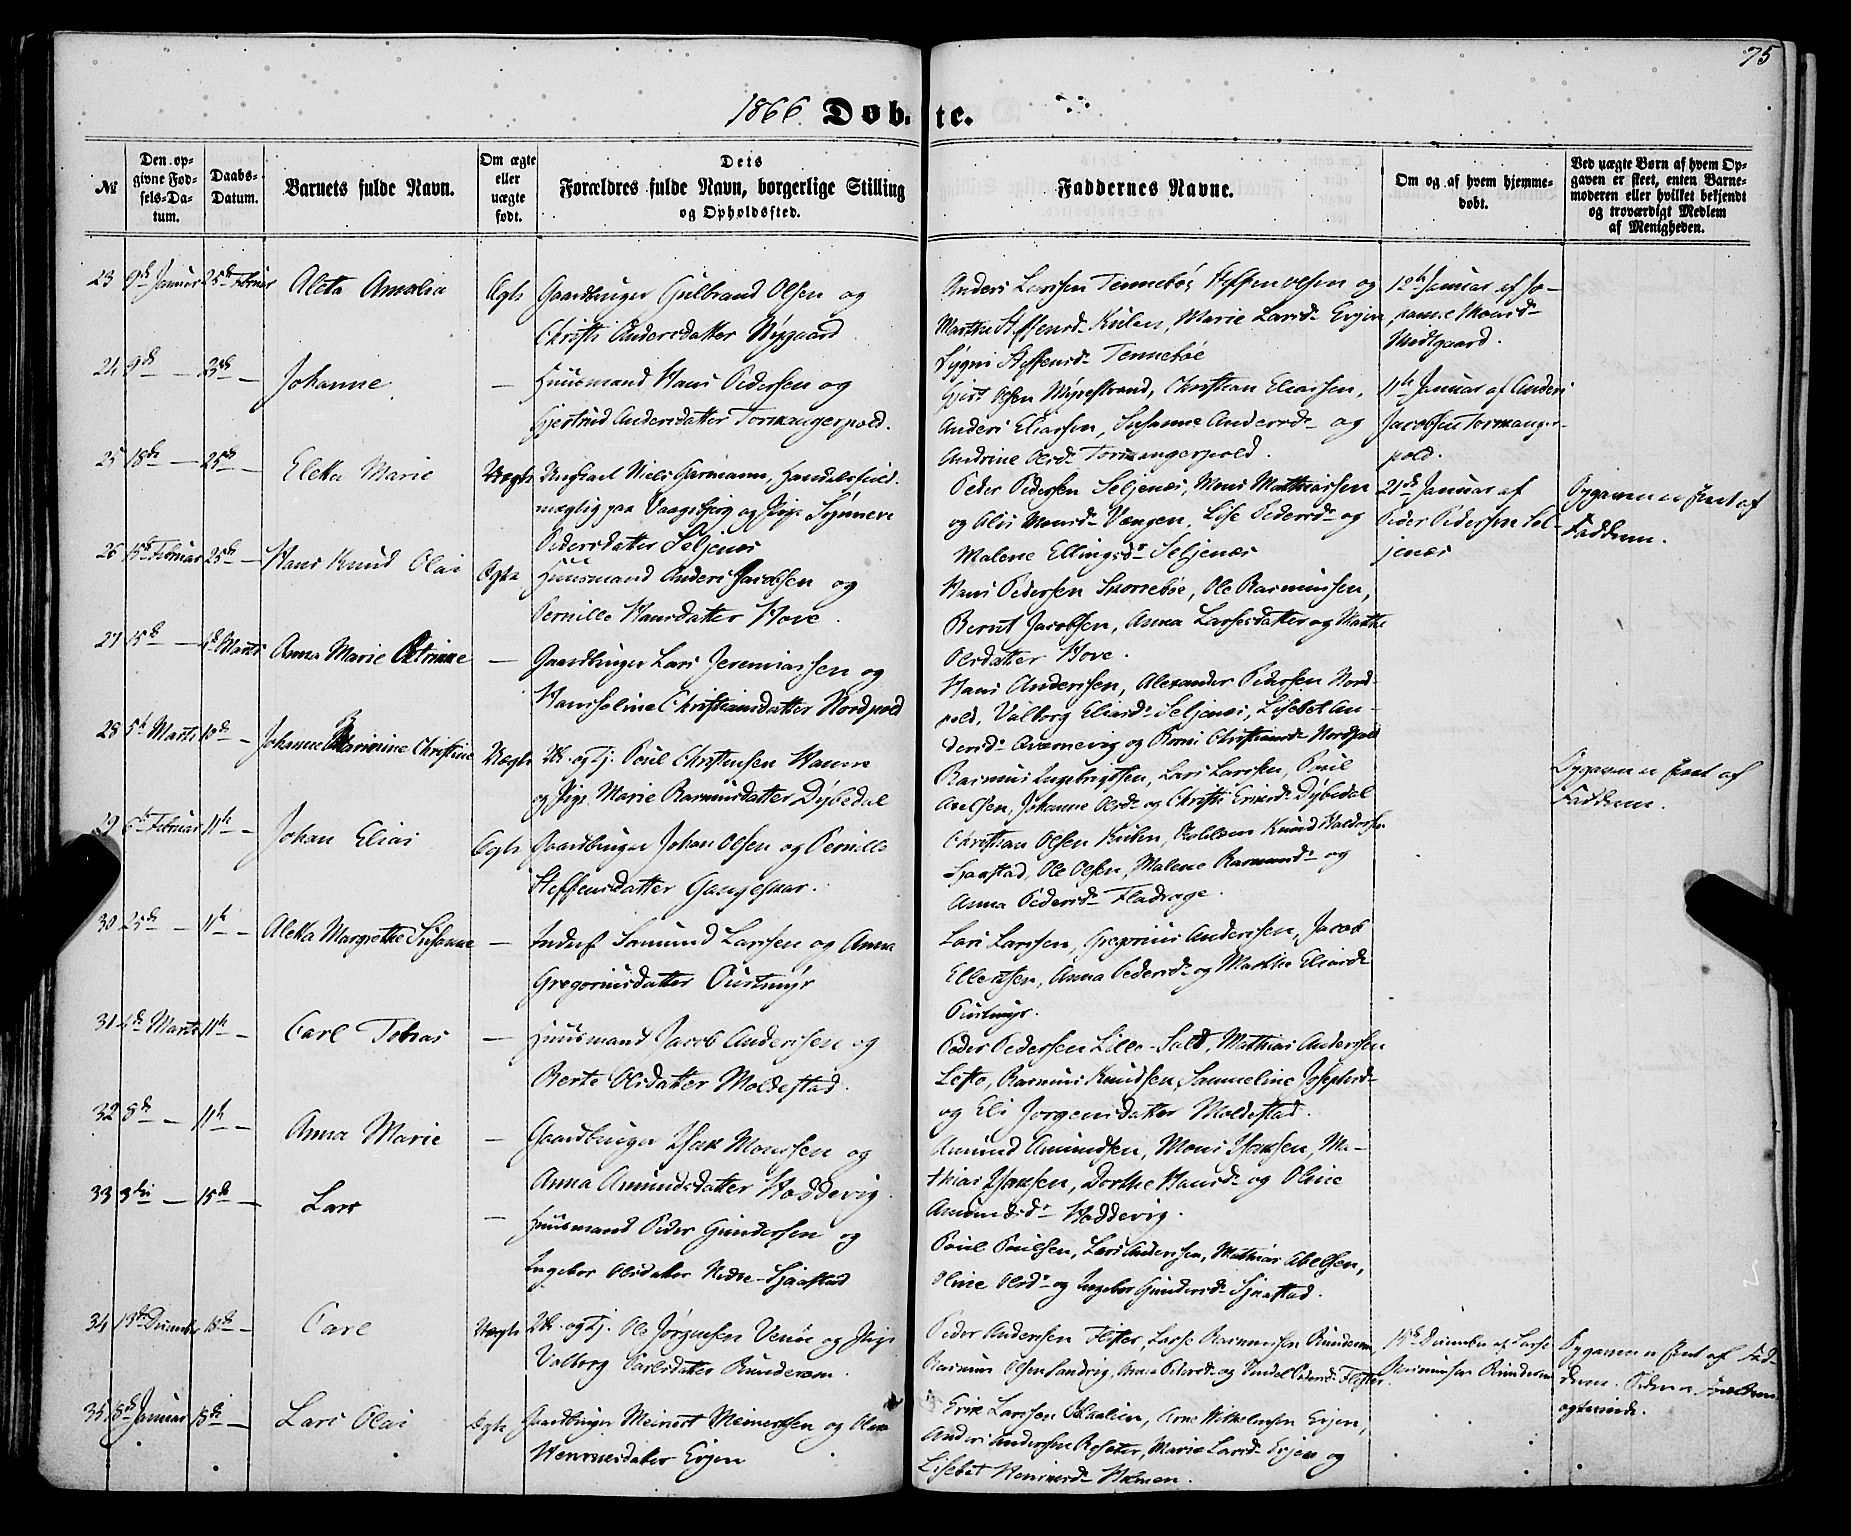 75
1866. Døbte.
№
Den opgivne Fødsels-Datum.
Daabs-Datum.
Barnets fulde Navn.
Om ægte eller uægte født.
Dets Forældres fulde Navn, borgerlige Stilling og Opholdssted.
Faddernes Navne.
Om og af hvem hjemmedøbt.
Ved uægte Børn af hvem Opgaven er skeet, enten Barnemoderen eller hvilket bekjendt og troværdigt Medlem af Menigheden.
23 9de Januar 25de Februar Aletta Amalia Ægte Gaardbruger Gulbrand Olsen og
Christi Andersdatter Nygaard
Anders Larssen Tennebøe, Steffen Olsen og
Marthe Steffensd. Kulen, Marie Larsd. Evjen
Sygni Steffensd. Tennebøe
12te Januar af Jo-
hanne Monsd.
Medtgaard.
24 9de — 25de — Johanne — Huusmand Hans Pedersen og
Gjertrud Andersdatter Tormangerpold.
Gjert Olsen Myrestrand, Christian Eliassen,
Anders Eliassen, Susanne Andersd. og
Andrine Olsd. Tormangerpold.
11te Januar af Anders
Jacobsen Tormanger-
pold.
25 18de — 25de — Elekta Marie Uægte Ungkarl Niels Garmann, Handelsfuld-
mægtig paa Vaagsberg og Pige Synneve
Pedersdatter Seljenæs
Peder Pedersen Seljenæs, Mons Matthiassen
og Alis Monsd. Vængen, Lise Pedersd. og
Malene Ellingsd. Seljenæs
21de Januar af
Peder Pedersen Sel-
jenæs
Opgaven er skeet af
Fadderne.
26 15de Februar 25de — Hans Knud Olai Ægte Huusmand Anders Jacobsen og
Pernille Hansdatter Hove.
Hans Pedersen Skorrebøe, Ole Rasmussen,
Bernt Jacobsen, Anna Larsesdatter og Marthe
Olsdatter Hove.
27 15de — Marts Anna Marie Petrine — Gaardbruger Lars Jeremiassen og
Hanseline Christiansdatter Nordpold
Hans Andersen, Alexander Pedersen Nord-
pold, Valborg Eliasd. Seljenæs, Lisebet An-
dersd. Qværnevig og Berni Christiansd. Nordpold
28 5te Marts — Johanne Marinine Christine Uægte Uk. og Tj. Poul Christensen Hamre
og Pige Marie Rasmusdatter Dybedal
Rasmus Ingebrigtsen, Lars Larssen, Poul
Axelsen, Johanne Olsd. og Christi Eriksd. Dybedal
Opgaven er skeet af
Fadderne.
29 6te Februar 11te — Johan Elias Ægte Gaardbruger Johan Olsen og Pernille
Steffensdatter Gangesaar.
Christian Olsen Kulen, Knud Haldorsen
Sjaastad, Ole Olsen, Malene Rasmusd. og
Anna Pedersd. Fladrage.
30 25de — 11te — Aletta Margrethe Susanne — Inders. Samund Larssen og Anna
Gregoriusdatter Puistmyr
Lars Larssen, Gregorius Andersen, Jacob
Ellertsen, Anna Pedersd. og Marthe Eliasd.
Puistmyr.
31 Marts 11te — Carl Tobias — Huusmand Jacob Andersen og
Berte Olsdatter Moldestad.
Peder Pedersen Lille-Salt, Mathias Andersen
Lefto, Rasmus Knudsen, Sammeline Josephsd.
og Eli Jørgensdatter Moldestad.
32 8de — 11te — Anna Marie — Gaardbruger Isak Monssen og
Anna Amundsdatter Hoddevig
Amund Amundsen, Mons Isaksen, Ma-
thias Isaksen, Dorthe Hansd. og Oline
Amundsd. Hoddevig.
33 3die — 15de — Lars — Huusmand Peder Gundersen og
Ingebor Olsdatter Nedre-Sjaastad
Poul Poulsen, Lars Andersen, Mathias Abelsen,
Oline Olsd. og Ingebor Gundersd. Sjaastad.
34 13de December 18de — Carl Uægte Uk. og Tj. Ole Jørgensen Venøe og Pige
Valborg Carlsdatter Runderem.
Peder Andersen Flister, Lasse Rasmussen Runderem
Rasmus Olsen Sandvig, Anne Pedersd. og Vendel Pedersd. Flister
15de December af Lasse
Rasmussen Runderem
Opgaven er skeet af Fad-
derne.
35 8de Januar 18de — Lars Olai Ægte Gaardbruger Meinert Meinertsen og Oline
Henriksdatter Evjen
Erik Larssen Maalien, Arne Wilhelmsen Evjen,
Anders Andersen Refseter, Marie Larsd. Evjen og
Lisebet Henriksd. Holmen.